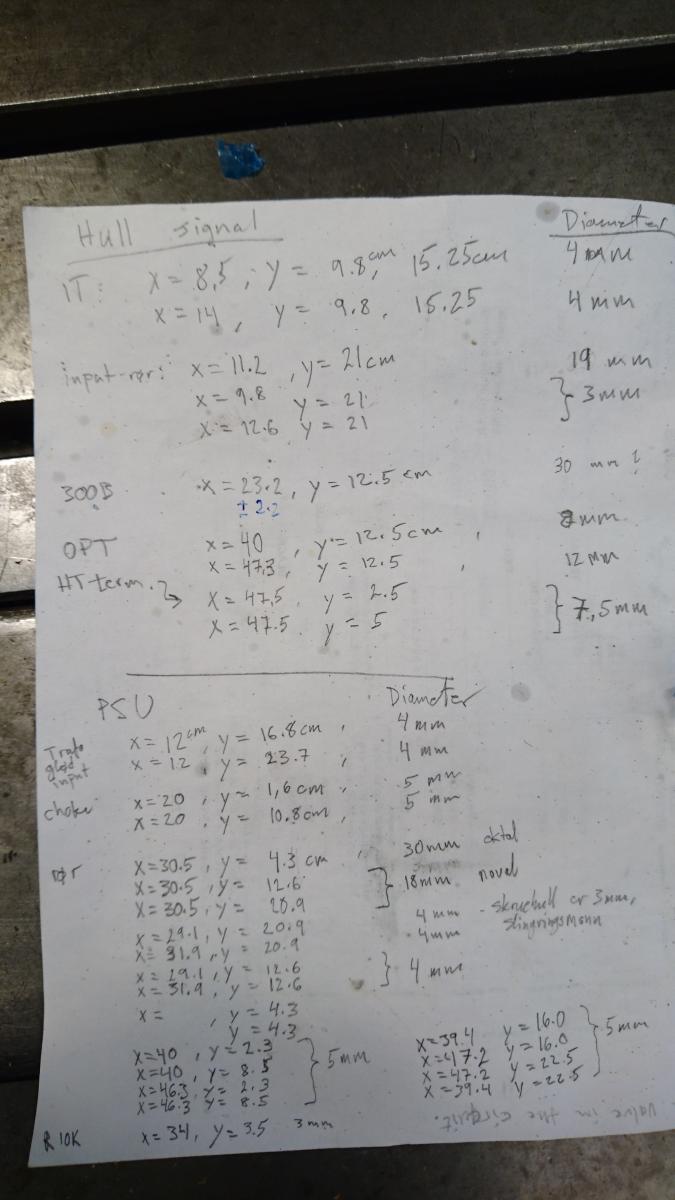 Hull signal Diameter
IT: x = 8,5 ; y = 9.8cm, 15.25cm 4mm
x = 14 , y = 9.8 , 15.25 4mm
input-rør: x = 11.2 , y = 21cm 19 mm
x = 9.8 y = 21 } 3mm
x = 12.6 y = 21
300B x = 23.2 , y = 12.5 cm 30 mm ?
± 2.2
OPT x = 40 , y = 12.5cm , 8mm
x = 47,3 , y = 12.5 , 12 mm
HT term. x = 47,5 y = 2.5 } 7,5mm
x = 47.5 y = 5
PSU Diameter
Trafo x = 12cm, y = 16.8cm , 4 mm
gløde input x = 12 , y = 23.7 , 4 mm
choke x = 20 , y = 1,6cm , 5 mm
x = 20 , y = 10.8cm , 5 mm
rør x = 30.5 , y = 4.3 cm , 30mm oktal
x = 30.5 , y = 12.6 } 18mm noval
x = 30.5 , y = 20.9
x = 29.1 , y = 20.9 4 mm - skruehull er 3mm,
x = 31.9 , y = 20.9 4mm slingringsmonn
x = 29.1 , y = 12.6 } 4 mm
x = 31.9 , y = 12.6
x = , y = 4.3
y = 4.3
x=40 , y = 2.3 } 5mm
x=40 , y = 8.5
x=46.3 , y = 2.3
x=46.3 y = 8.5
x=39.4 y = 16.0 } 5mm
x=47.2 y = 16.0
x=47.2 y = 22.5
x=39.4 y = 22.5
R 10K x = 34, y = 3.5 3mm
value in the circuit.